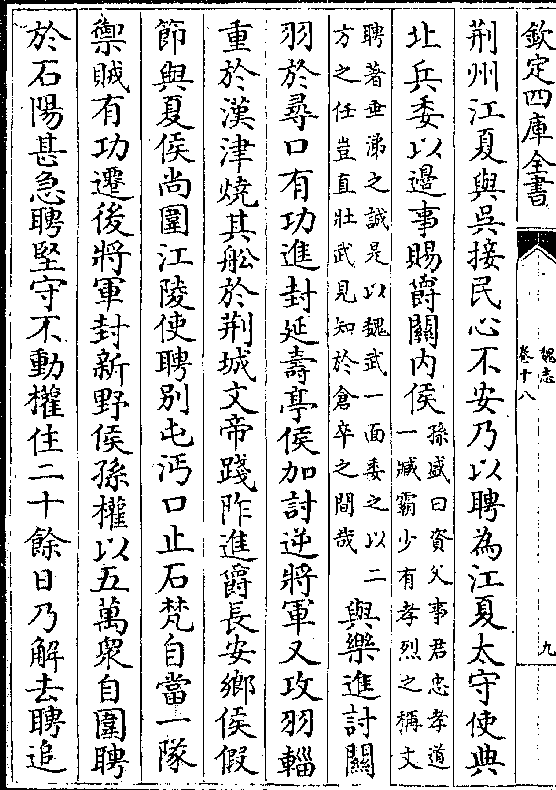 欽定四庫全書
魏志
卷十八
九
荆州江夏與吳接民心不安乃以聘為江夏太守使典
北兵委以邊事賜爵關內侯
孫盛曰資父事君忠孝道
一臧霸少有孝烈之稱文
聘著垂涕之誠是以魏武一面委之以二
方之任豈直壯武見知於倉卒之間哉
與樂進討關
羽於尋口有功進封延壽亭侯加討逆將軍又攻羽輜
重於漢津燒其舩於荆城文帝踐阼進爵長安鄉侯假
節與夏侯尚圍江陵使聘別屯沔口止石梵自當一隊
禦賊有功遷後將軍封新野侯孫權以五萬衆自圍聘
於石陽甚急聘堅守不動權住二十餘日乃解去聘追